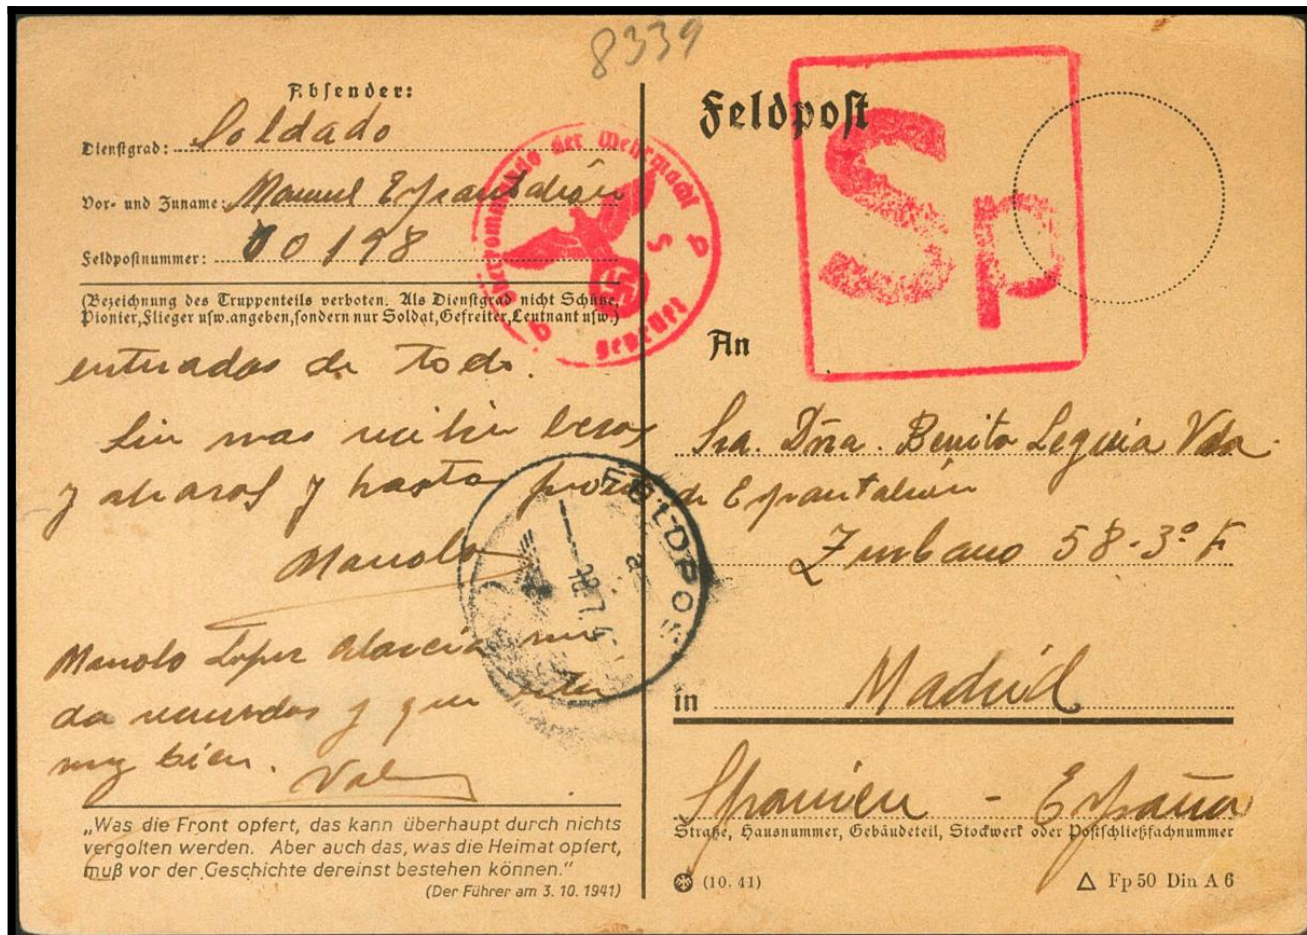 8339
Absender:
Dienstgrad: Soldado
Vor- und Zuname: Manuel Espantaleón
Feldpostnummer: 00198
(Bezeichnung des Truppenteils verboten. Als Dienstgrad nicht Schütze,
Pionier, Flieger usw. angeben, sondern nur Soldat, Gefreiter, Leutnant usw.)
enterados de todo.
Sin mas reciben besos
y abrazos y hasta
Manolo
Manolo Lopez me
da recuerdos y que esta
muy bien.
Vale
„Was die Front opfert, das kann überhaupt durch nichts
vergolten werden. Aber auch das, was die Heimat opfert,
muß vor der Geschichte dereinst bestehen können.“
(Der Führer am 3. 10. 1941)
Oberkommando der Wehrmacht
b b
geprüft
FELDPOST
a
Feldpost
Sp
An
Sra. Dña. Benita Leguia Vda.
de Espantaleón
Zurbano 58-3º
in Madrid
Spanien - España
Straße, Hausnummer, Gebäudeteil, Stockwerk oder Postschließfachnummer
(10. 41)
Fp 50 Din A 6